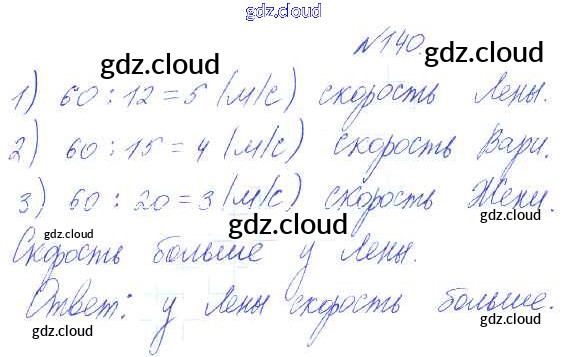 gdz.cloud
№140.
gdz.cloud
1) 60 : 12 = 5 (м/с) скорость Лены.
gdz.cloud
gdz.cloud
2) 60 : 15 = 4 (м/с) скорость Вари.
gdz.cloud
3) 60 : 20 = 3 (м/с) скорость Жени.
gdz.cloud
gdz.cloud
gdz.cloud
Скорость больше у Лены.
gdz.cloud
Ответ: у Лены скорость больше.
gdz.cloud
gdz.cloud
gdz.cloud